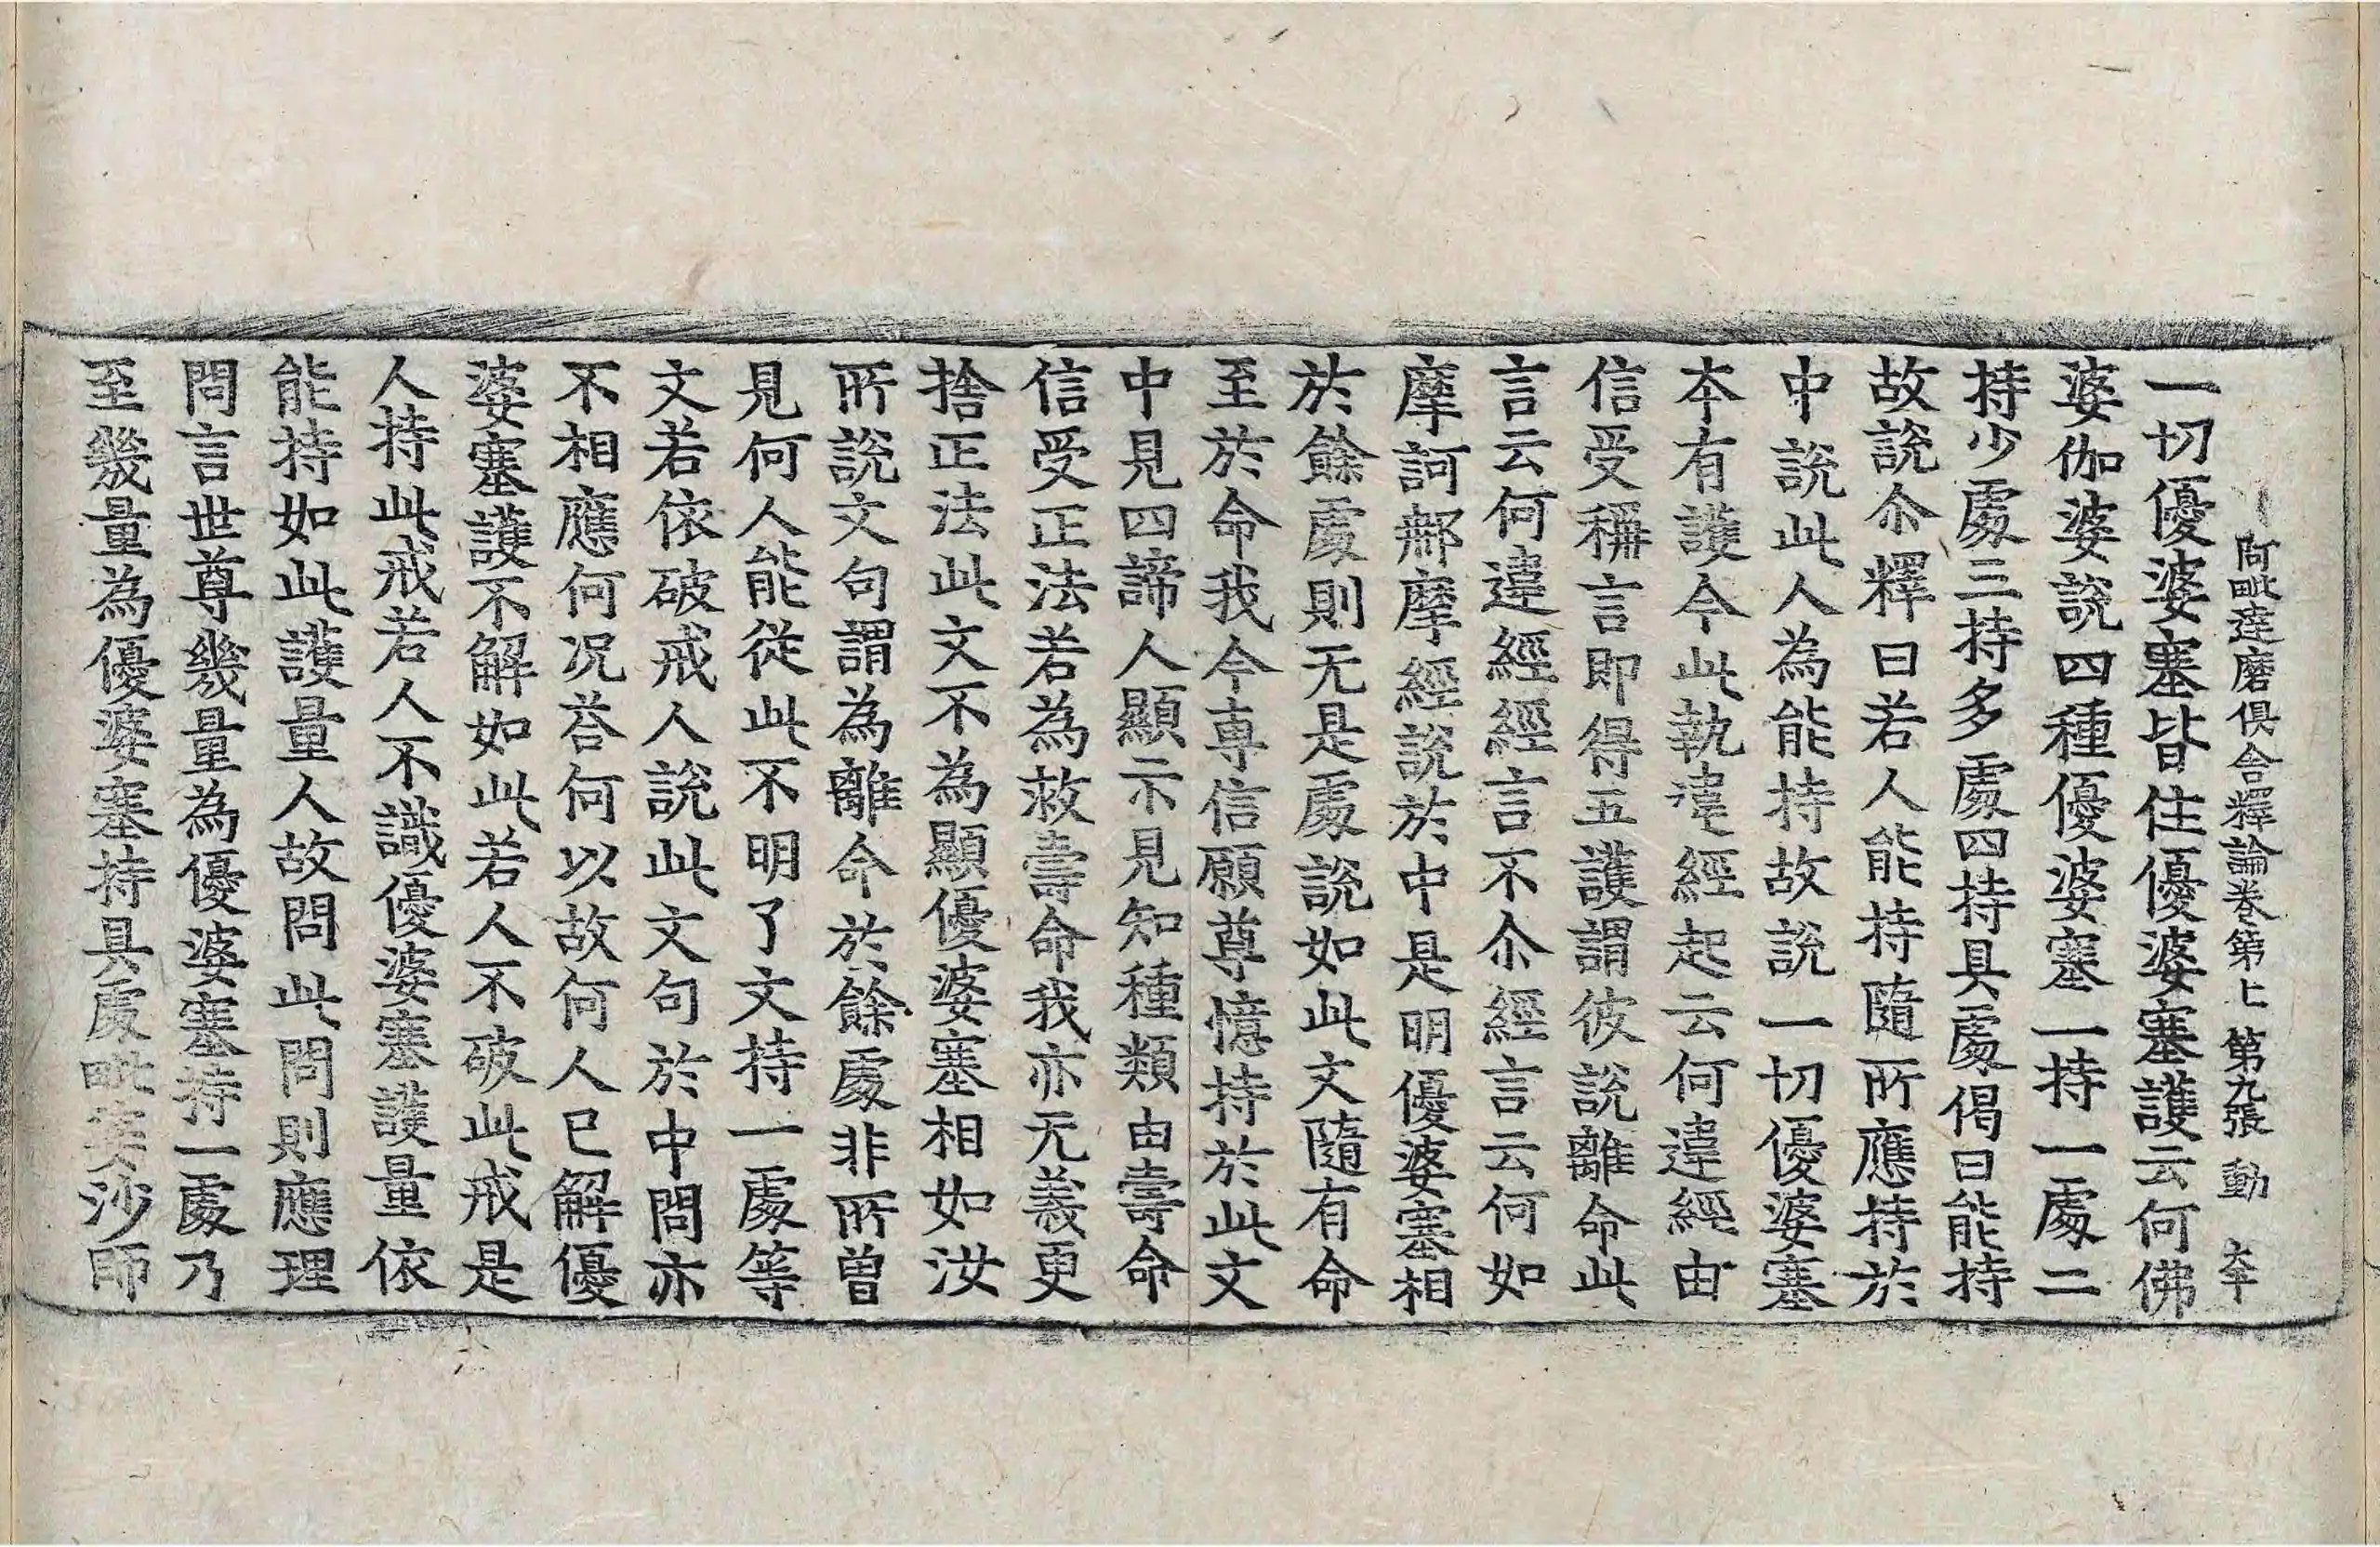 阿毗達磨俱舍釋論卷第十　第九張　動
一切優婆塞皆住優婆塞護云何佛
婆伽婆說四種優婆塞一持一處二
持少處三持多處四持具處偈曰能持
故說尒釋曰若人能持隨所應持於
中說此人為能持故說一切優婆塞
本有護今此執違經起云何違經由
信受稱言即得五護謂彼說離命此
言云何違經經言不尒經言云何如
摩訶郝摩經說於中是明優婆塞相
於餘處則无是處說如此文隨有命
至於命我今専信願尊憶持於此文
中見四諦人顯示見知種類由壽命
信受正法若為救壽命我亦无義更
捨正法此文不為顯優婆塞相如汝
所說文句謂為離命於餘處非所曾
見何人能從此不明了文持一處等
文若依破戒人說此文句於中問亦
不相應何况荅何以故何人已解優
婆塞護不解如此若人不破此戒是
人持此戒若人不識優婆塞護量依
能持如此護量人故問此問則應理
問言世尊幾量為優婆塞持一處乃
至幾量為優婆塞持具處毗婆沙師